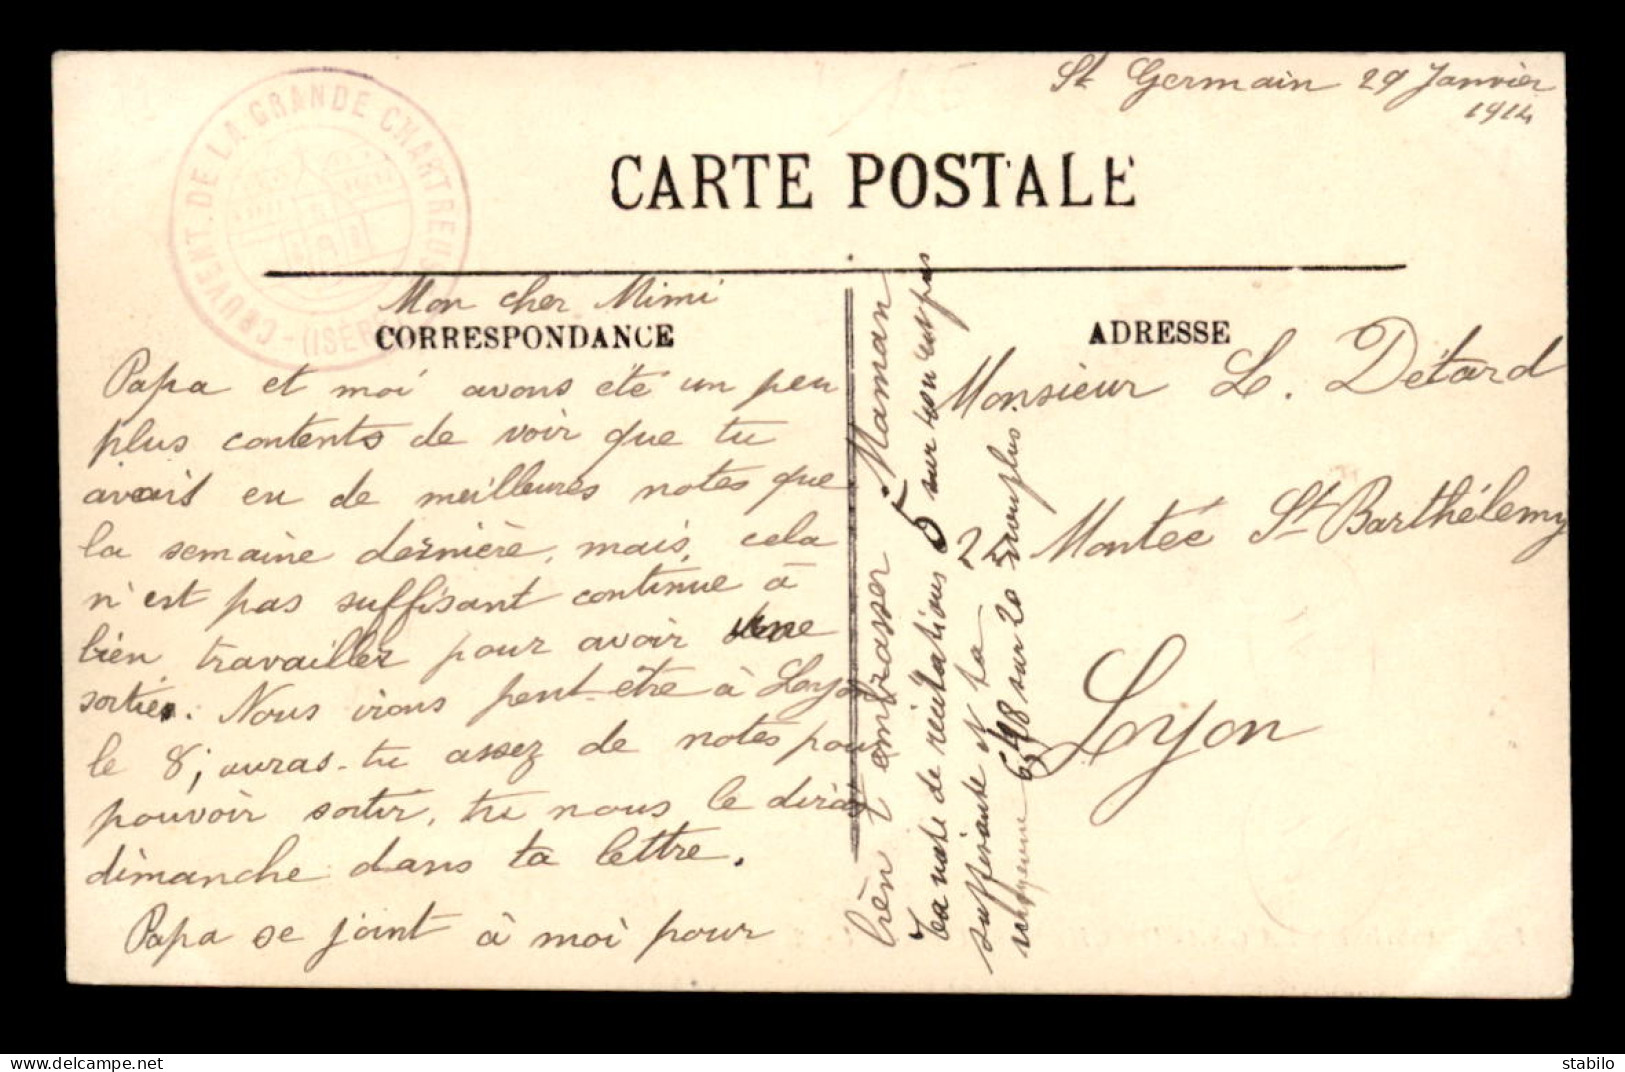 St Germain 29 Janvier
1914
COUVENT. DE LA GRANDE CHARTREUSE - (ISÈRE)
CARTE POSTALE
Mon cher Mimi
CORRESPONDANCE
Papa et moi avons été un peu
plus contents de voir que tu
avais eu de meilleures notes que
la semaine dernière, mais, cela
n'est pas suffisant continue à
bien travailler pour avoir une
sortie. Nous irons peut-être à Lyon
le 8; auras-tu assez de notes pour
pouvoir sortir, tu nous le diras
dimanche dans ta lettre.
Papa se joint à moi pour
bien t'embrasser Maman
Ta note de récitations 5 sur 10 n'est pas
suffisante et ta
moyenne 648 sur 20 non plus.
ADRESSE
Monsieur L. Détard
24 Montée St Barthélemy
Lyon
stabilo